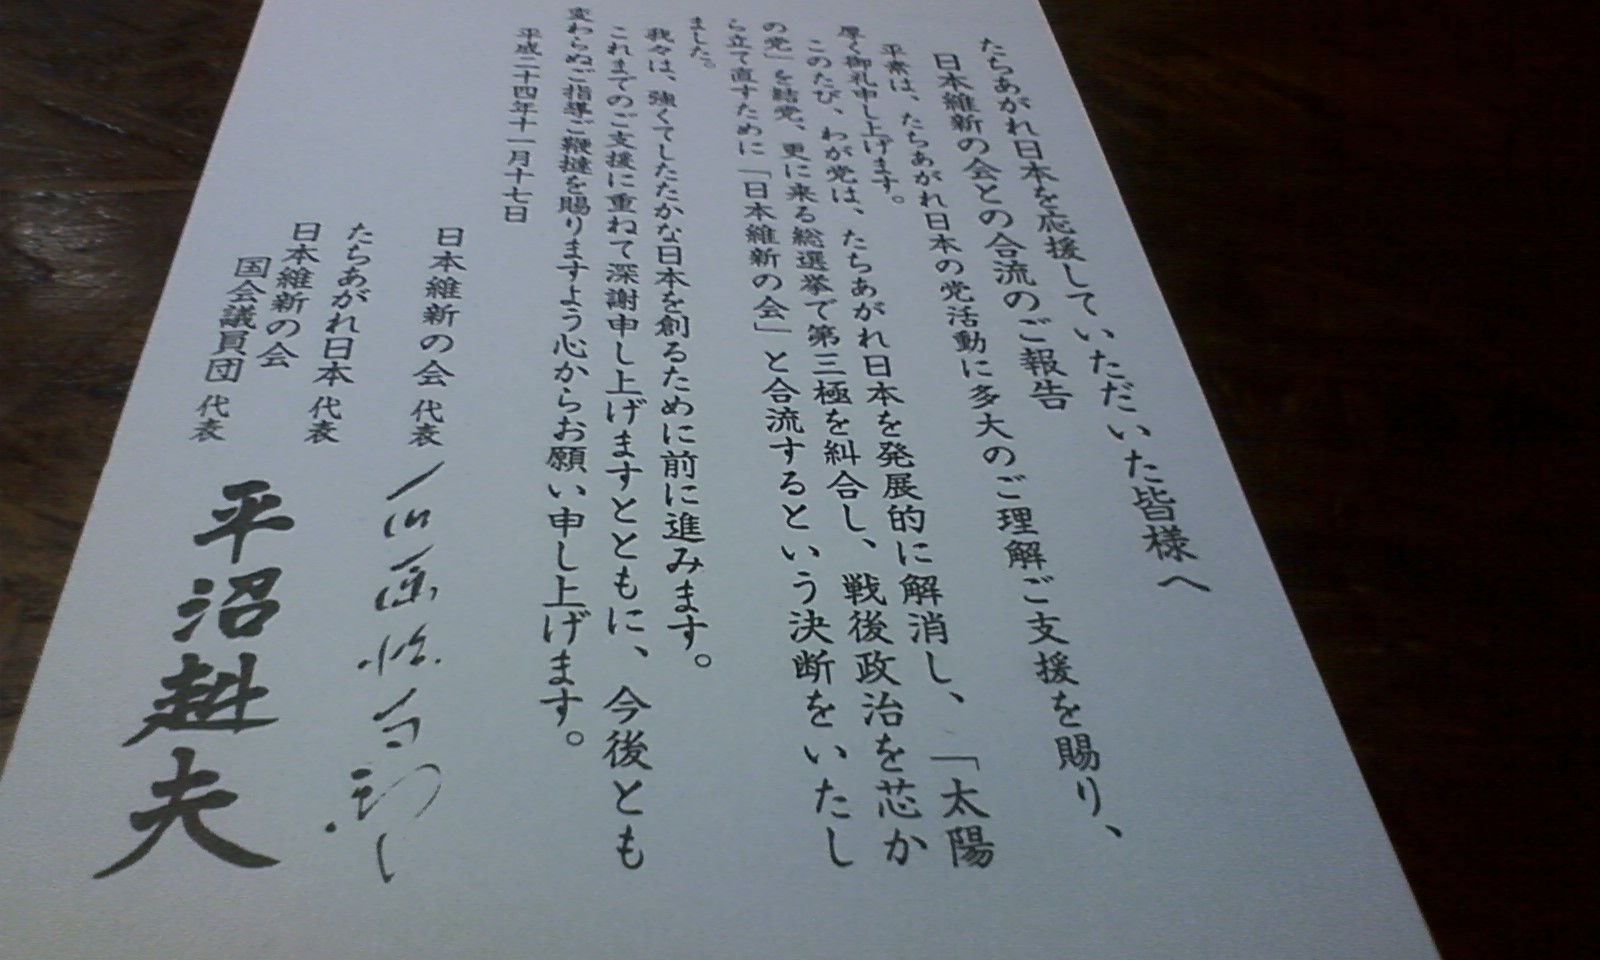 たちあがれ日本を応援していただいた皆様へ
日本維新の会との合流のご報告
平素は、たちあがれ日本の党活動に多大のご理解ご支援を賜り、
厚く御礼申し上げます。
このたび、わが党は、たちあがれ日本を発展的に解消し、「太陽
の党」を結党、更に来る総選挙で第三極を糾合し、戦後政治を芯か
ら立て直すために「日本維新の会」と合流するという決断をいたし
ました。
我々は、強くてしたたかな日本を創るために前に進みます。
これまでのご支援に重ねて深謝申し上げますとともに、今後とも
変わらぬご指導ご鞭撻を賜りますよう心からお願い申し上げます。
平成二十四年十一月十七日
日本維新の会 代表
たちあがれ日本 代表
日本維新の会
国会議員団 代表
平沼赳夫